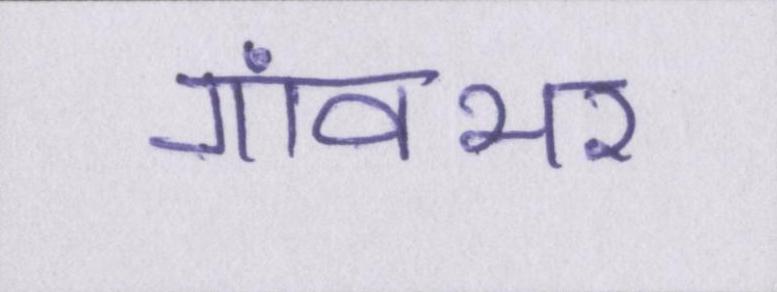 गांवभर